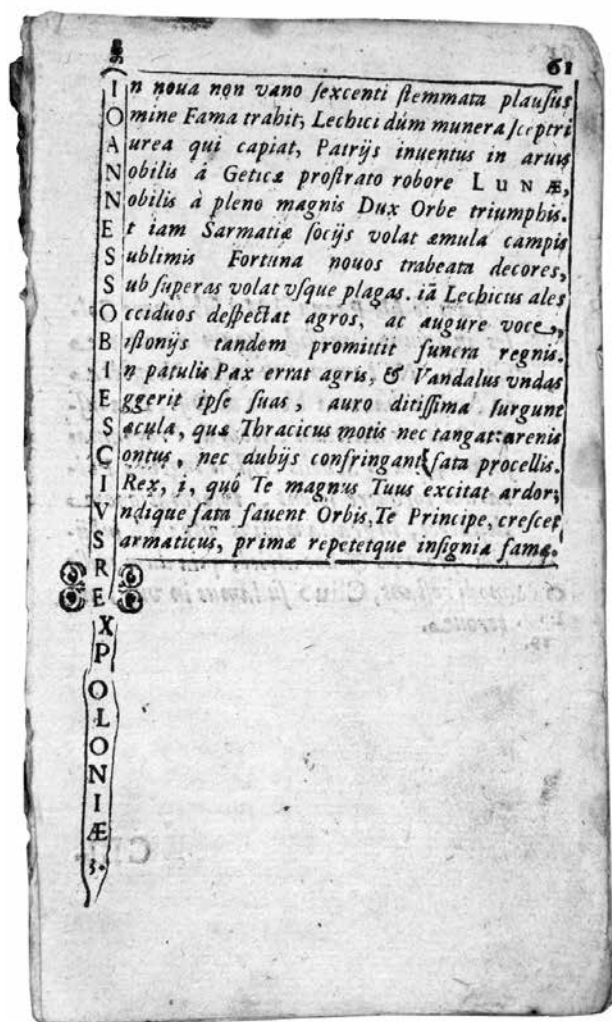 61
In noua non vano ſexcenti ſtemmata plauſus
Omine Fama trahit, Lechici dúm munera ſceptri
Aurea qui capiat, Patrijs inuentus in aruis
Nobilis á Geticæ proſtrato robore LUNÆ,
Nobilis à pleno magnis Dux Orbe triumphis.
Et iam Sarmatiæ ſocijs volat æmula campis
Sublimis Fortuna nouos trabeata decores,
Sub ſuperas volat vſque plagas. iã Lechicus ales
Occiduos deſpectat agros, ac augure voce,
Biſtonijs tandem promittit funera regnis.
In patulis Pax errat agris, & Vandalus vndas
Eggerit ipſe ſuas, auro ditiſſima ſurgunt
Sæcula, quæ Thracicus motis nec tangat arenis
Contus, nec dubijs confringant fata procellis.
I Rex, i, quó Te magnus Tuus excitat ardor;
Vndique fata fauent Orbis, Te Principe, creſcet
Sarmaticus, primæ repetetque inſignia famæ.
REX POLONIÆ